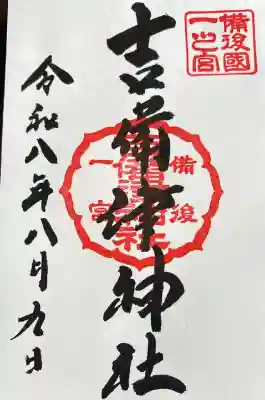 備後國
一之宮
吉備津神社
備後
一宮
令和八年八月九日